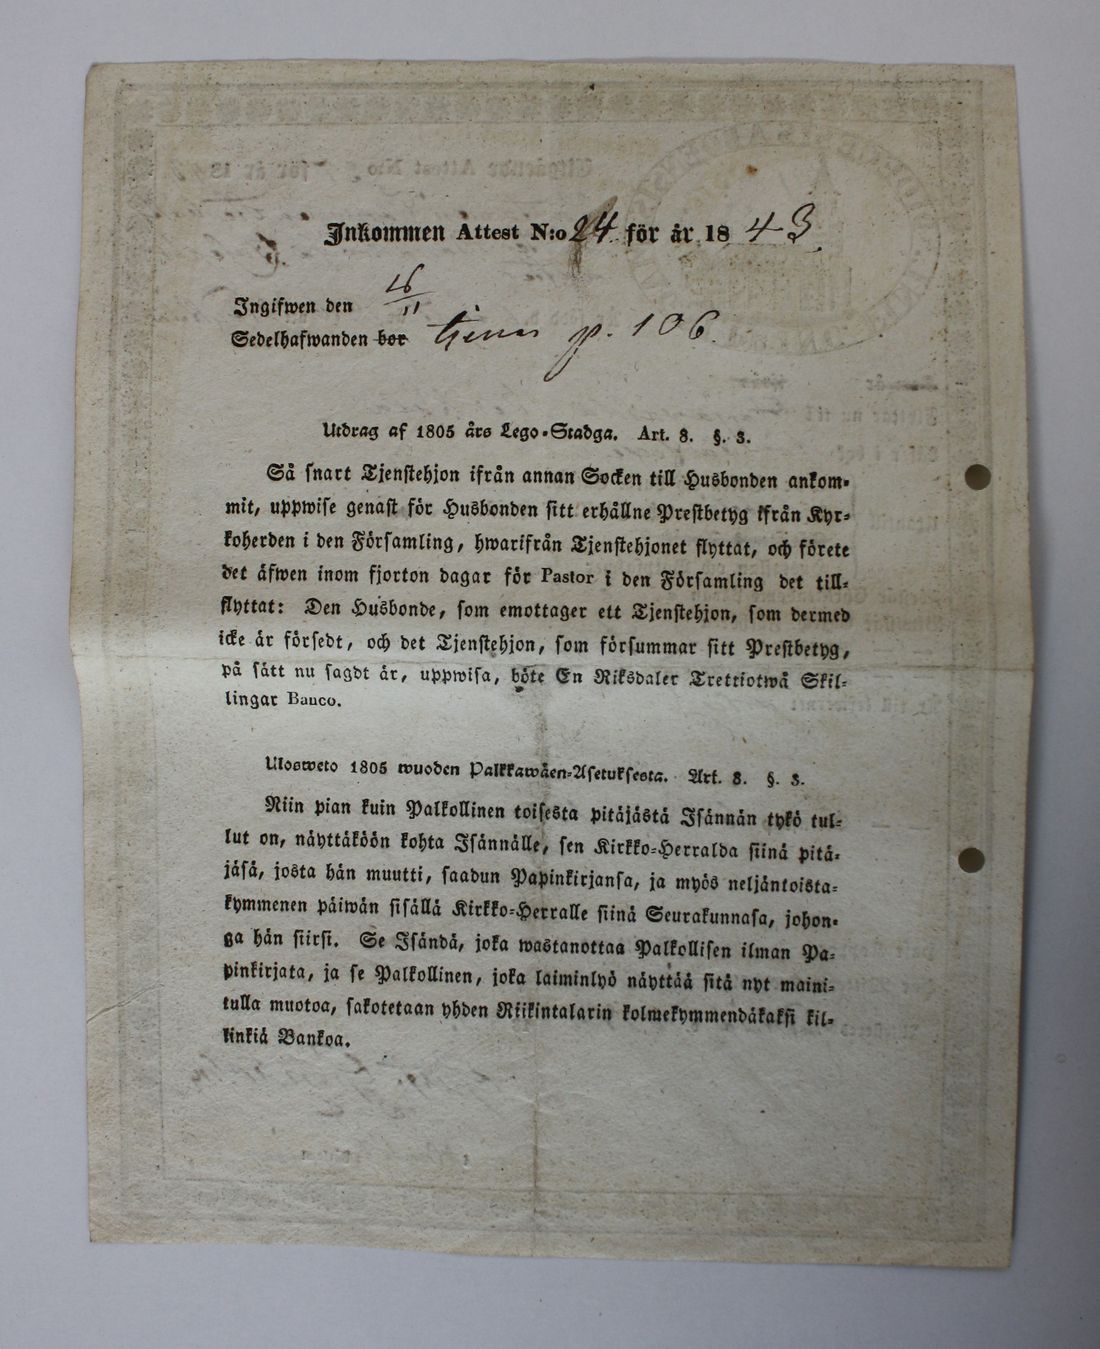 Inkommen Attest N:o 24 för år 1843.
Ingifwen den 16/11
Sedelhafwanden bor tjenar p. 106.
Utdrag af 1805 års Lego-Stadga. Art. 8. §. 3.
Så snart Tjenstehjon ifrån annan Socken till Husbonden ankom-
mit, uppwise genast för Husbonden sitt erhållne Prestbetyg ifrån Kyr-
koherden i den Församling, hwarifrån Tjenstehjonet flyttat, och förete
det äfwen inom fjorton dagar för Pastor i den Församling det till-
flyttat: Den Husbonde, som emottager ett Tjenstehjon, som dermed
icke är försedt, och det Tjenstehjon, som försummar sitt Prestbetyg,
på sätt nu sagdt är, uppwisa, böte En Riksdaler Trettiotwå Skil-
lingar Banco.
Ulosweto 1805 wuoden Palkkawäen-Asetuksesta. Art. 8. §. 3.
Niin pian kuin Palkollinen toisesta pitäjästä Isännän tykö tul-
lut on, näyttäköön kohta Isännälle, sen Kirkko-Herralda siinä pitä-
jäsä, josta hän muutti, saadun Papinkirjansa, ja myös neljäntoista-
kymmenen päiwän sisällä Kirkko-Herralle siinä Seurakunnasa, johon-
ga hän siirsi. Se Isändä, joka wastanottaa Palkollisen ilman Pa-
pinkirjata, ja se Palkollinen, joka laiminlyö näyttää sitä nyt maini-
tulla muotoa, sakotetaan yhden Riikintalarin kolmekymmendäkaksi kil-
kinkiä Bankoa.